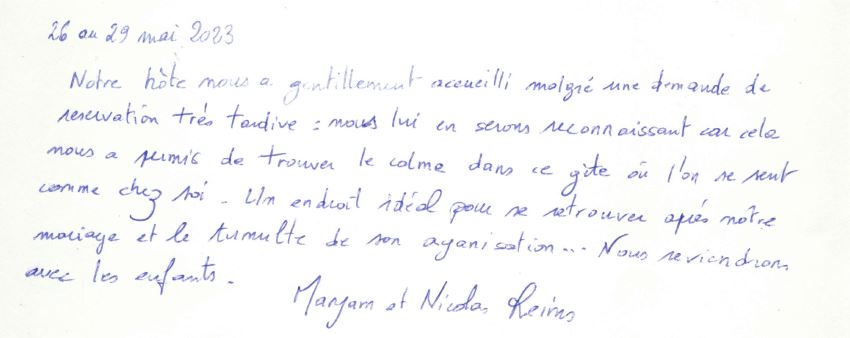 26 au 29 mai 2023
Notre hôte nous a gentillement accueilli malgré une demande de
reservation très tardive : nous lui en serons reconnaissant car cela
nous a permis de trouver le calme dans ce gîte où l'on se sent
comme chez soi. Un endroit idéal pour se retrouver après nôtre
mariage et le tumulte de son organisation... Nous reviendrons
avec les enfants.
Maryam et Nicolas Reims